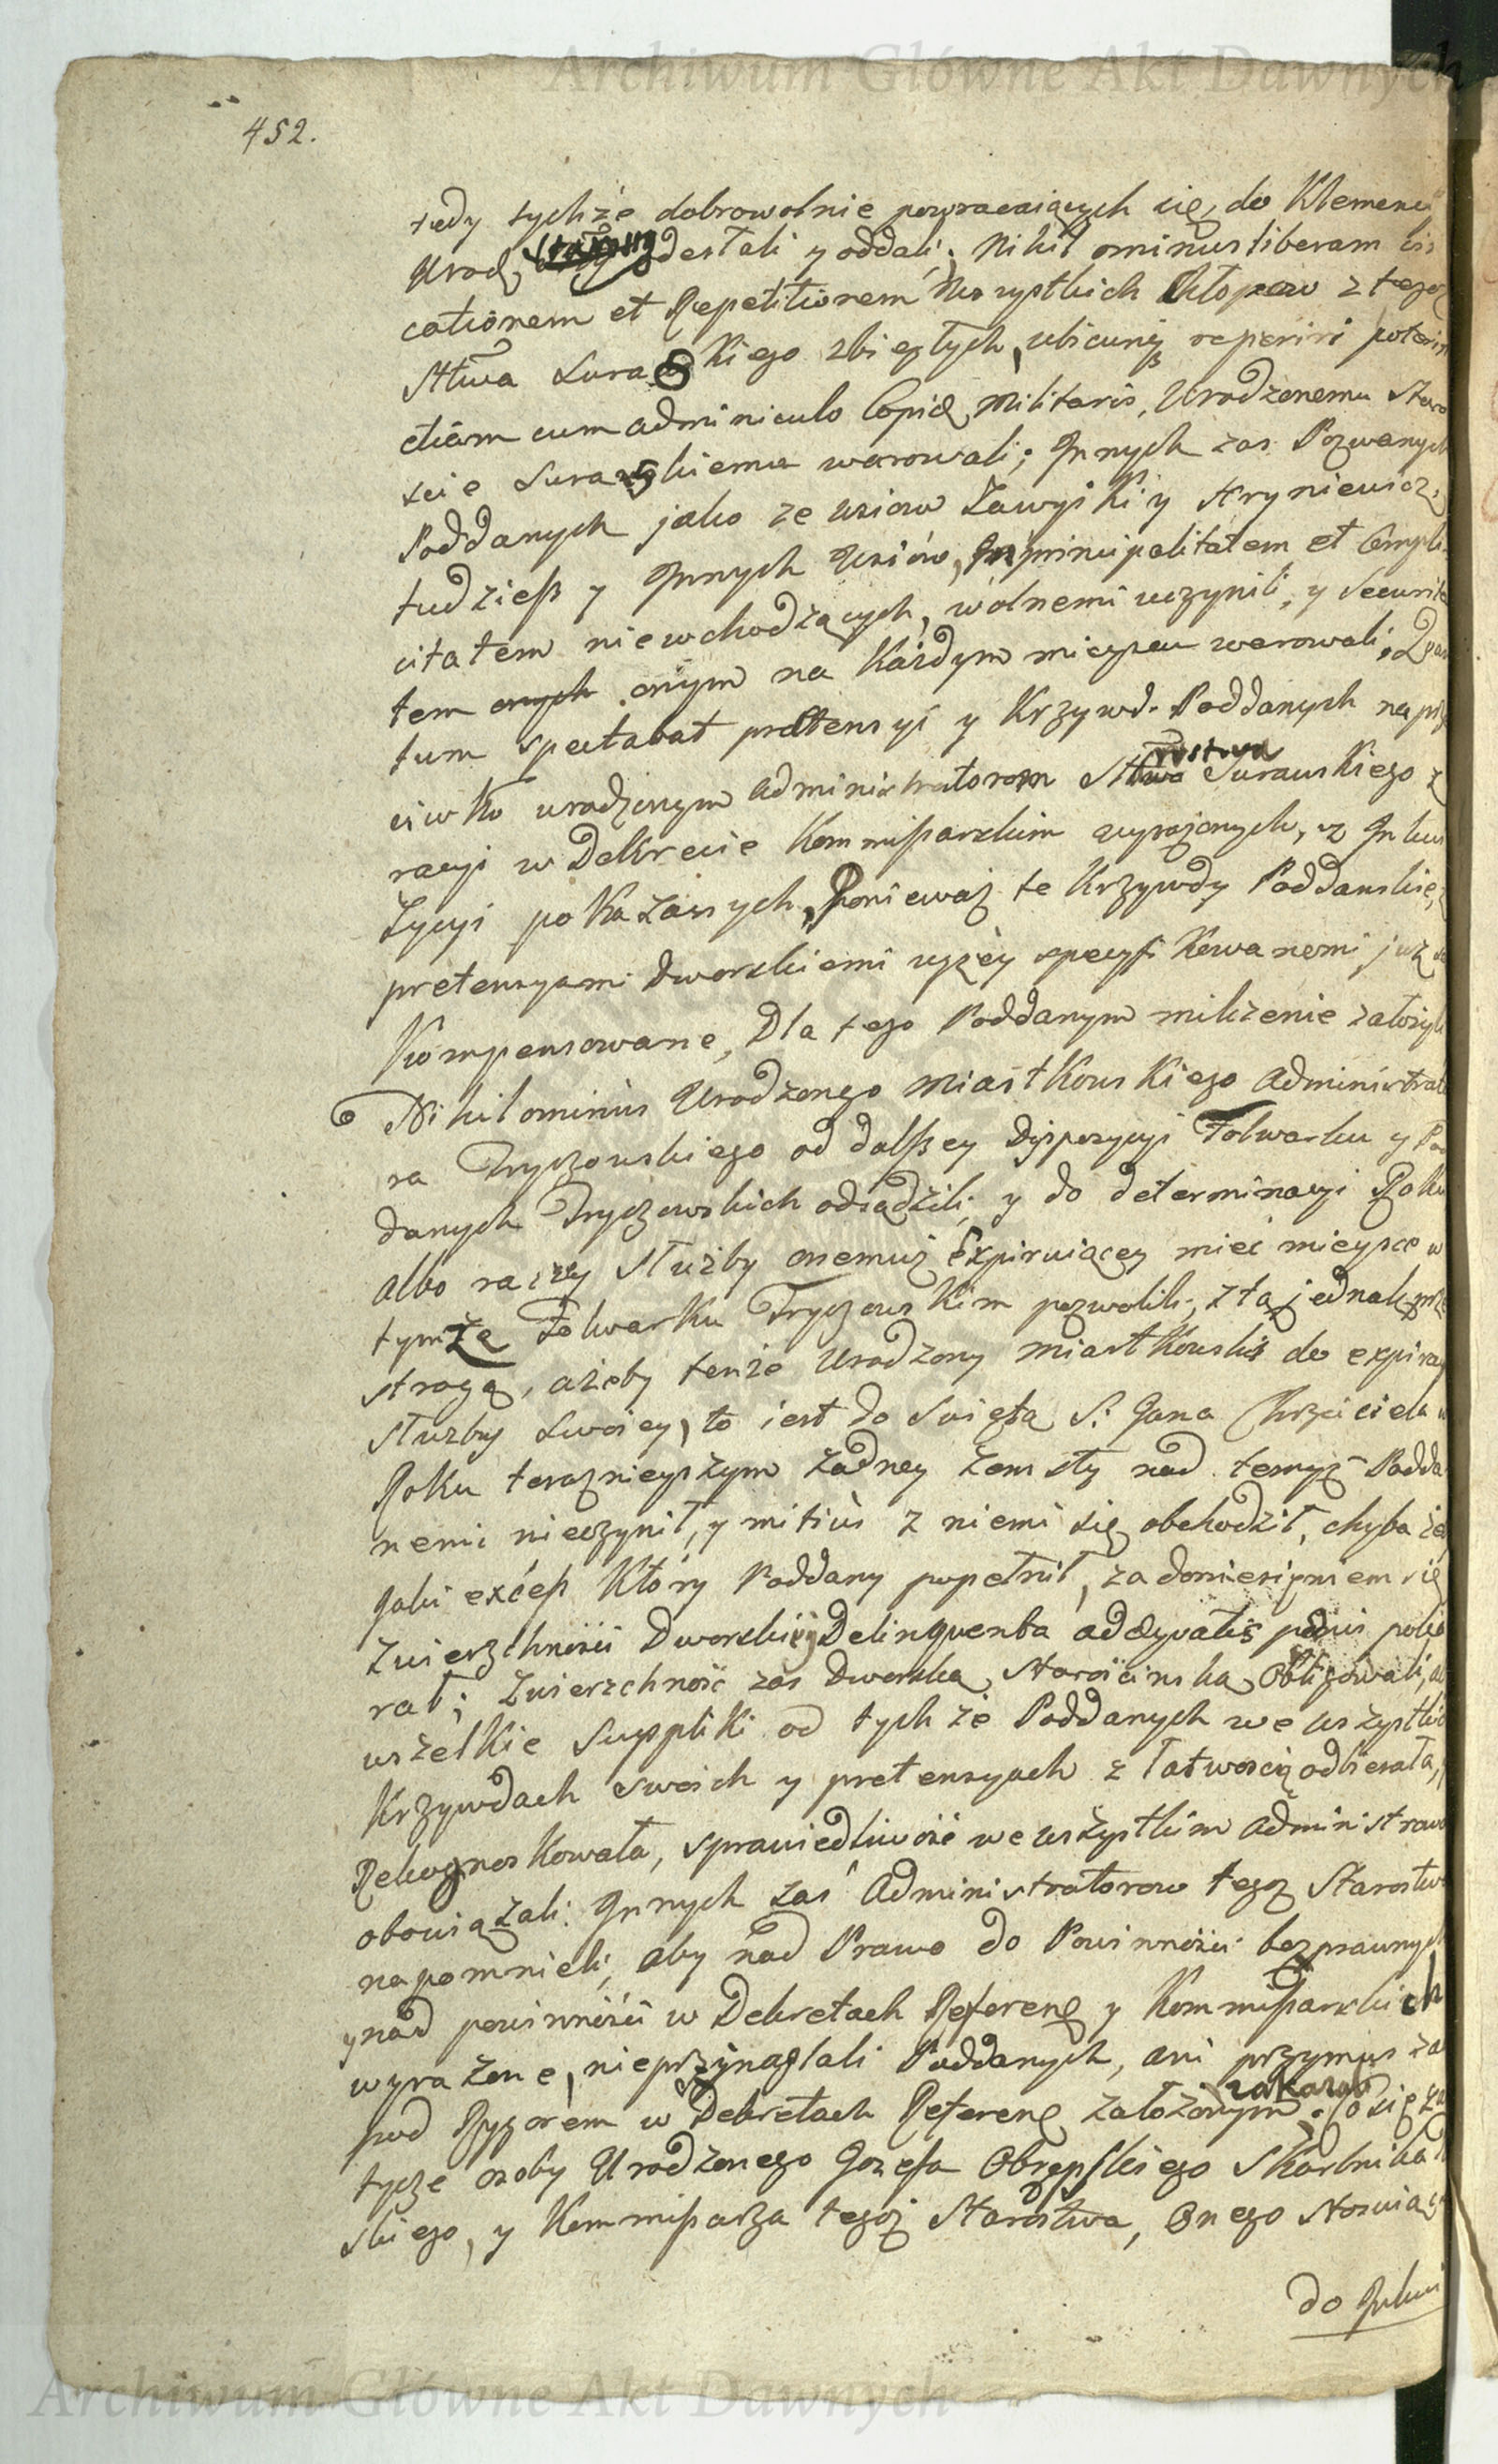 Archiwum Główne Akt Dawnych
452.
tedy tychże dobrowolnie powracaiących się, do Klemencyi
Urodz. destali y oddali; Nihil ominus liberam
cationem et Repetitionem Wszystkich Chłopow z tegoż
Sttwa Suraskiego zbiegłych, ubicunq reperiri poterint
etiam cum adminiculo Copiæ Militaris, Urodzonemu Staro
scie Suraskiemu warowali; Innych zas Pozwanych
Poddanych jako ze wsiow Zawyki y Hryniewicz,
tudzieß y Innych Wsiów, In principalitatem et Compli
citatem niewchodzących, wolnemi uczynili, y Securita
tem onych onym na każdym mieyscu warowali, Quan
tum spectabat prætensyi y Krzywd Poddanych naprze
ciwko urodzonym Administratorom Sttwa rostwa Surawskiego z
racyi w Dekrecie Kommißarskim wyrażonych, z Inkwi
zycyi pokazanych, Ponieważ te Krzywdy Poddanskie, z
pretensyami Dworskiemi wyżey specyfikowanemi, już są
Kompensowane, Dla tego Poddanym milczenie założyli
Nihilominus Urodzonego Miastkowskiego Administrato
ra Tryczowskiego od dalßey Dyspozycyi Folwarku y Pod
danych Tryczowskich odsądzili, y do determinacyi Roku
albo raczey służby onemuż Expiruiącey mieć mieysce w
tymże Folwarku Tryczowskim pozwolili, z tą jednak prze
strogą, ażeby tenże Urodzony Miastkowski do expiracyi
służby swoiey, to iest do Swięta S. Jana Chrzciciela w
Roku teraznieyszym żadney zemsty nad temyż Podda
nemi nieczynił, y mitius z niemi się obchodził, chyba że
Jaki exceß Który Poddany popełnił, za doniesieniem się
Zwierzchności Dworskiey Delinquenta adæquatis pænis poka
rał; Zwierzchność zas Dworską Starościnską Obligowali, aby
wszelkie Suppliki od tychże Poddanych we wszystkich
Krzywdach swoich y pretensyach z łatwoscią odbierała, y
Rekognoskowała, sprawiedliwość we wszystkim Administrować
obowiązali. Innych zaś Administratorow tegoż Starostwa
napomnieli, aby nad Prawo do Powinności bezprawnych
y nad powinności w Dekretach Referen: y Kommißarskich
wyrażone, nieprzynaglali Poddanych, ani przymus
pod Rygorem w Dekretach Referen: założonym zakazali. Co się zaś
tycze osoby Urodzonego Jozefa Obrępskiego Skarbnika
skiego, y Kommißarza tegoż Starostwa, Onego
do Inkwi
Archiwum Główne Akt Dawnych